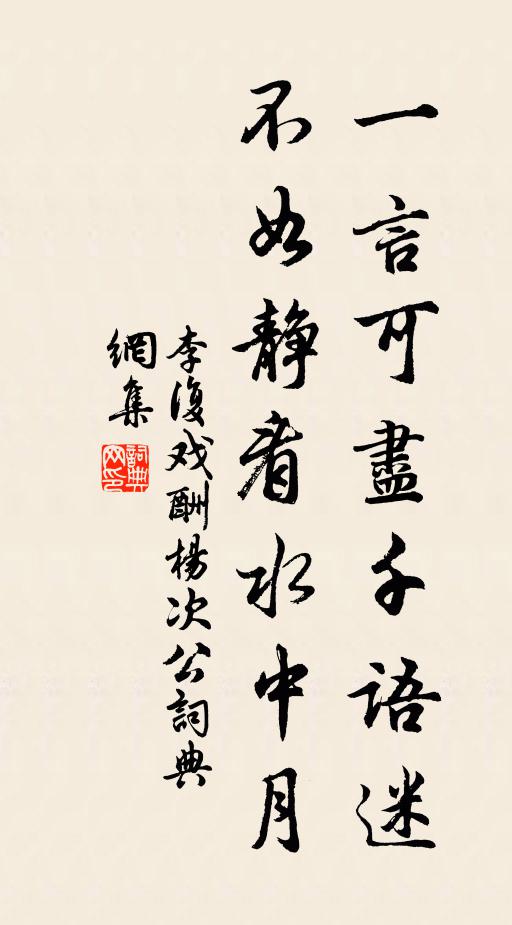 一言可盡千語迷
不如静看水中月
李復戏酬楊次公詞典
網集
詞典
网印